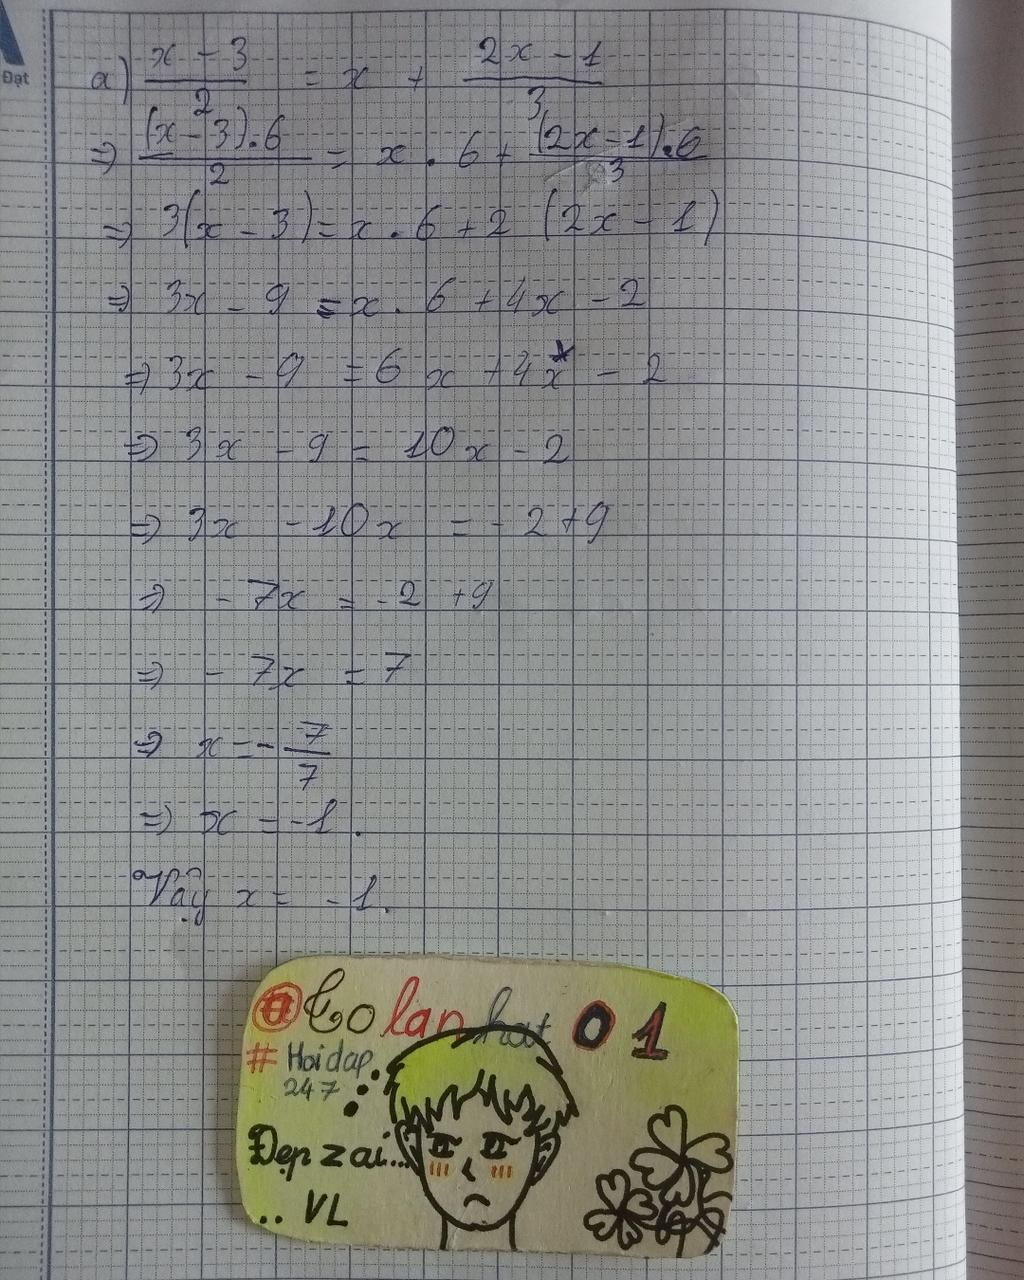 Đạt
a) x - 3 / 2 = x + 2x - 1 / 3
=> (x - 3).6 / 2 = x . 6 + (2x - 1).6 / 3
=> 3(x - 3) = x . 6 + 2 (2x - 1)
=> 3x - 9 = x . 6 + 4x - 2
=> 3x - 9 = 6x + 4x - 2
=> 3x - 9 = 10x - 2
=> 3x - 10x = - 2 + 9
=> - 7x = - 2 + 9
=> - 7x = 7
=> x = - 7 / 7
=> x = - 1 .
Vậy x = - 1.
lan hat 01
# Hoidap
247
Đẹp zai...
.. VL